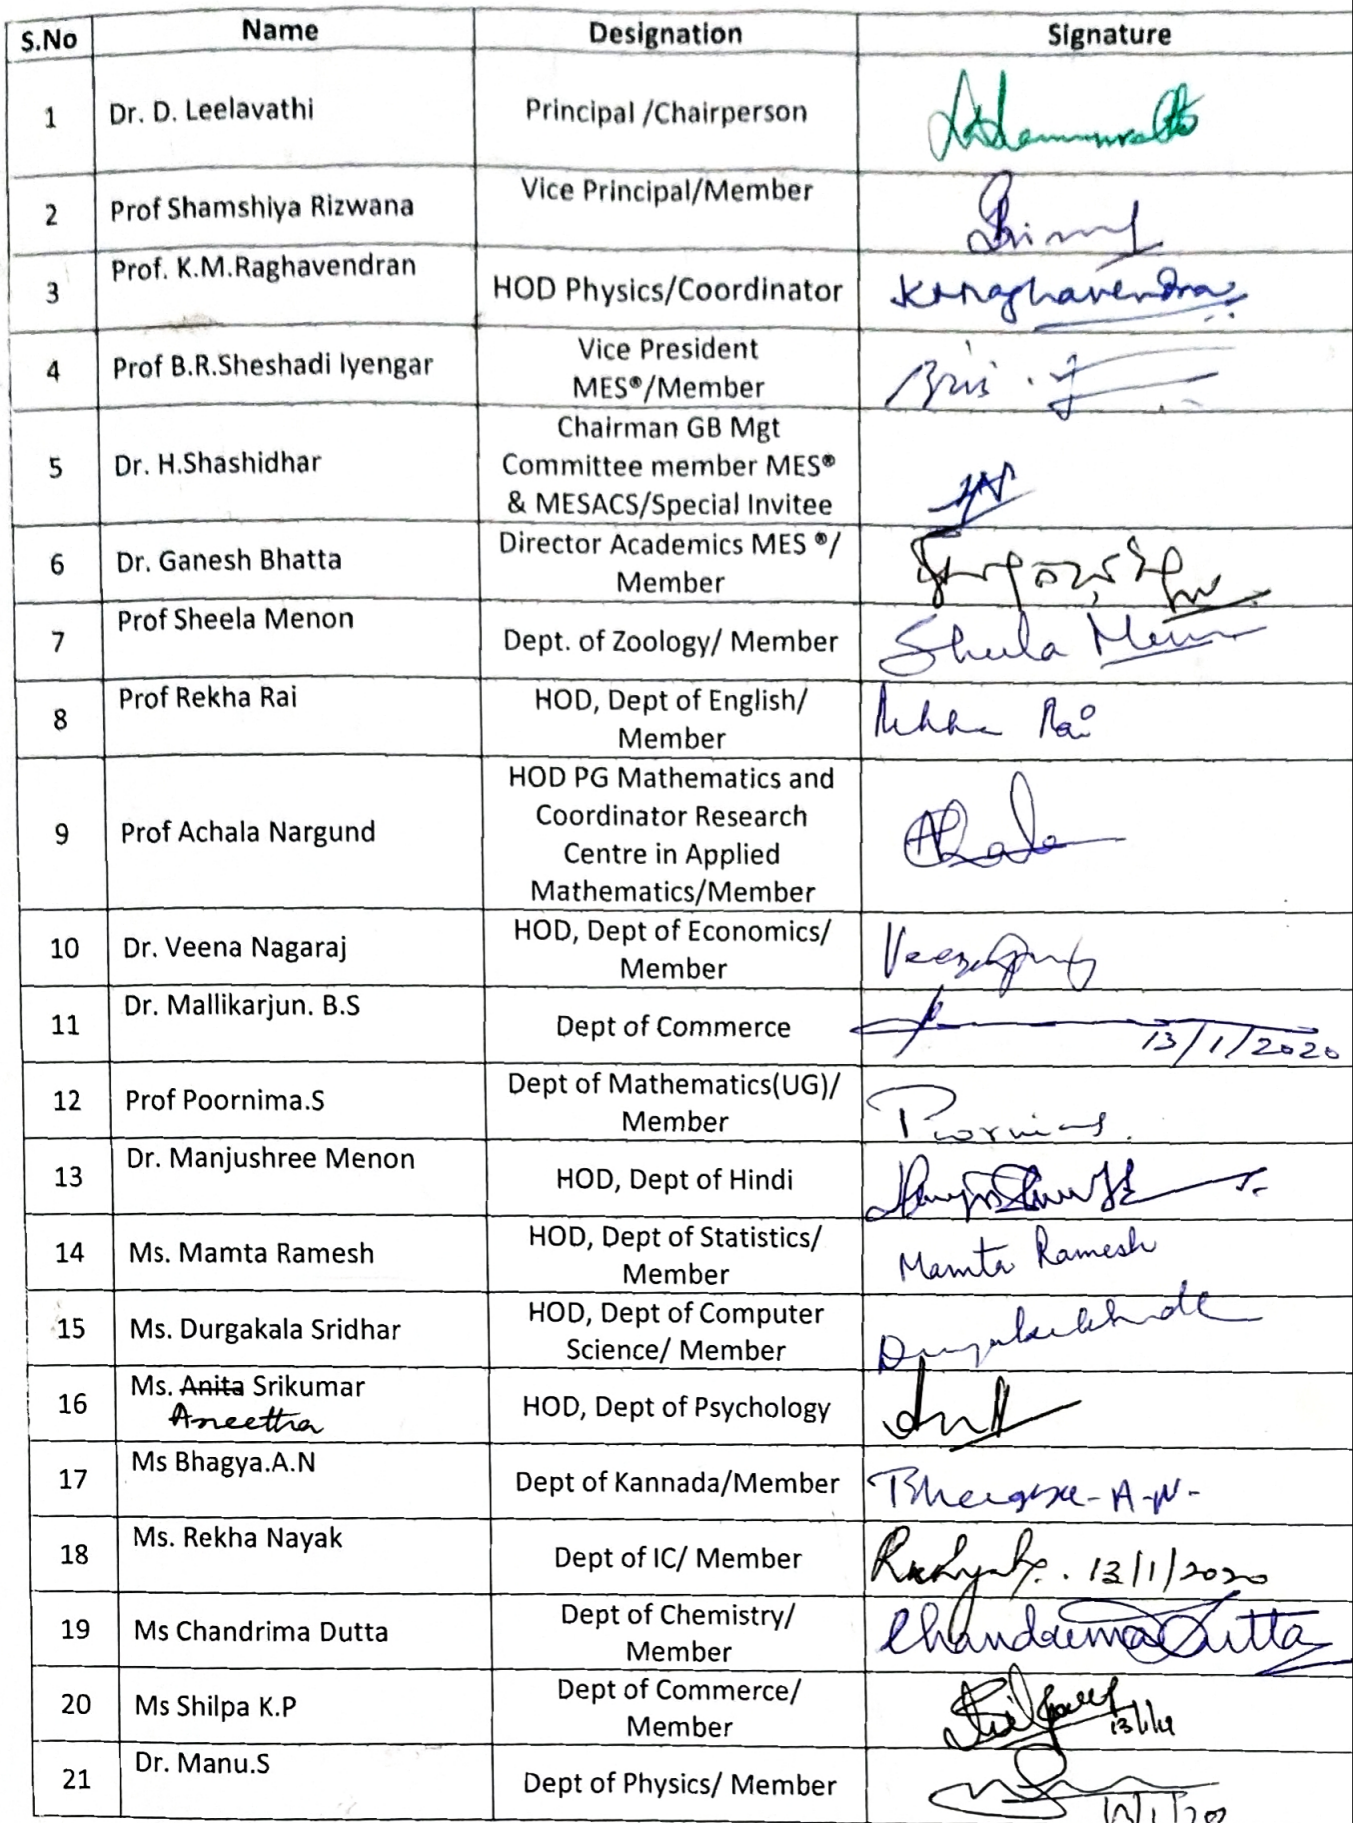 S.No Name Designation Signature
1 Dr. D. Leelavathi Principal /Chairperson
2 Prof Shamshiya Rizwana Vice Principal/Member
3 Prof. K.M.Raghavendran HOD Physics/Coordinator
4 Prof B.R.Sheshadi Iyengar Vice President
MES®/Member
5 Dr. H.Shashidhar Chairman GB Mgt
Committee member MES®
& MESACS/Special Invitee
6 Dr. Ganesh Bhatta Director Academics MES ®/
Member
7 Prof Sheela Menon Dept. of Zoology/ Member Sheela Menon
8 Prof Rekha Rai HOD, Dept of English/
Member Rekha Rai
9 Prof Achala Nargund HOD PG Mathematics and
Coordinator Research
Centre in Applied
Mathematics/Member
10 Dr. Veena Nagaraj HOD, Dept of Economics/
Member
11 Dr. Mallikarjun. B.S Dept of Commerce 13/1/2020
12 Prof Poornima.S Dept of Mathematics(UG)/
Member Poornima S.
13 Dr. Manjushree Menon HOD, Dept of Hindi
14 Ms. Mamta Ramesh HOD, Dept of Statistics/
Member Mamta Ramesh
15 Ms. Durgakala Sridhar HOD, Dept of Computer
Science/ Member
16 Ms. Anita Srikumar HOD, Dept of Psychology
Aneetha
17 Ms Bhagya.A.N Dept of Kannada/Member Bhagya-A-N-
18 Ms. Rekha Nayak Dept of IC/ Member 13/1/2020
19 Ms Chandrima Dutta Dept of Chemistry/
Member Chandrima Dutta
20 Ms Shilpa K.P Dept of Commerce/
Member
21 Dr. Manu.S Dept of Physics/ Member